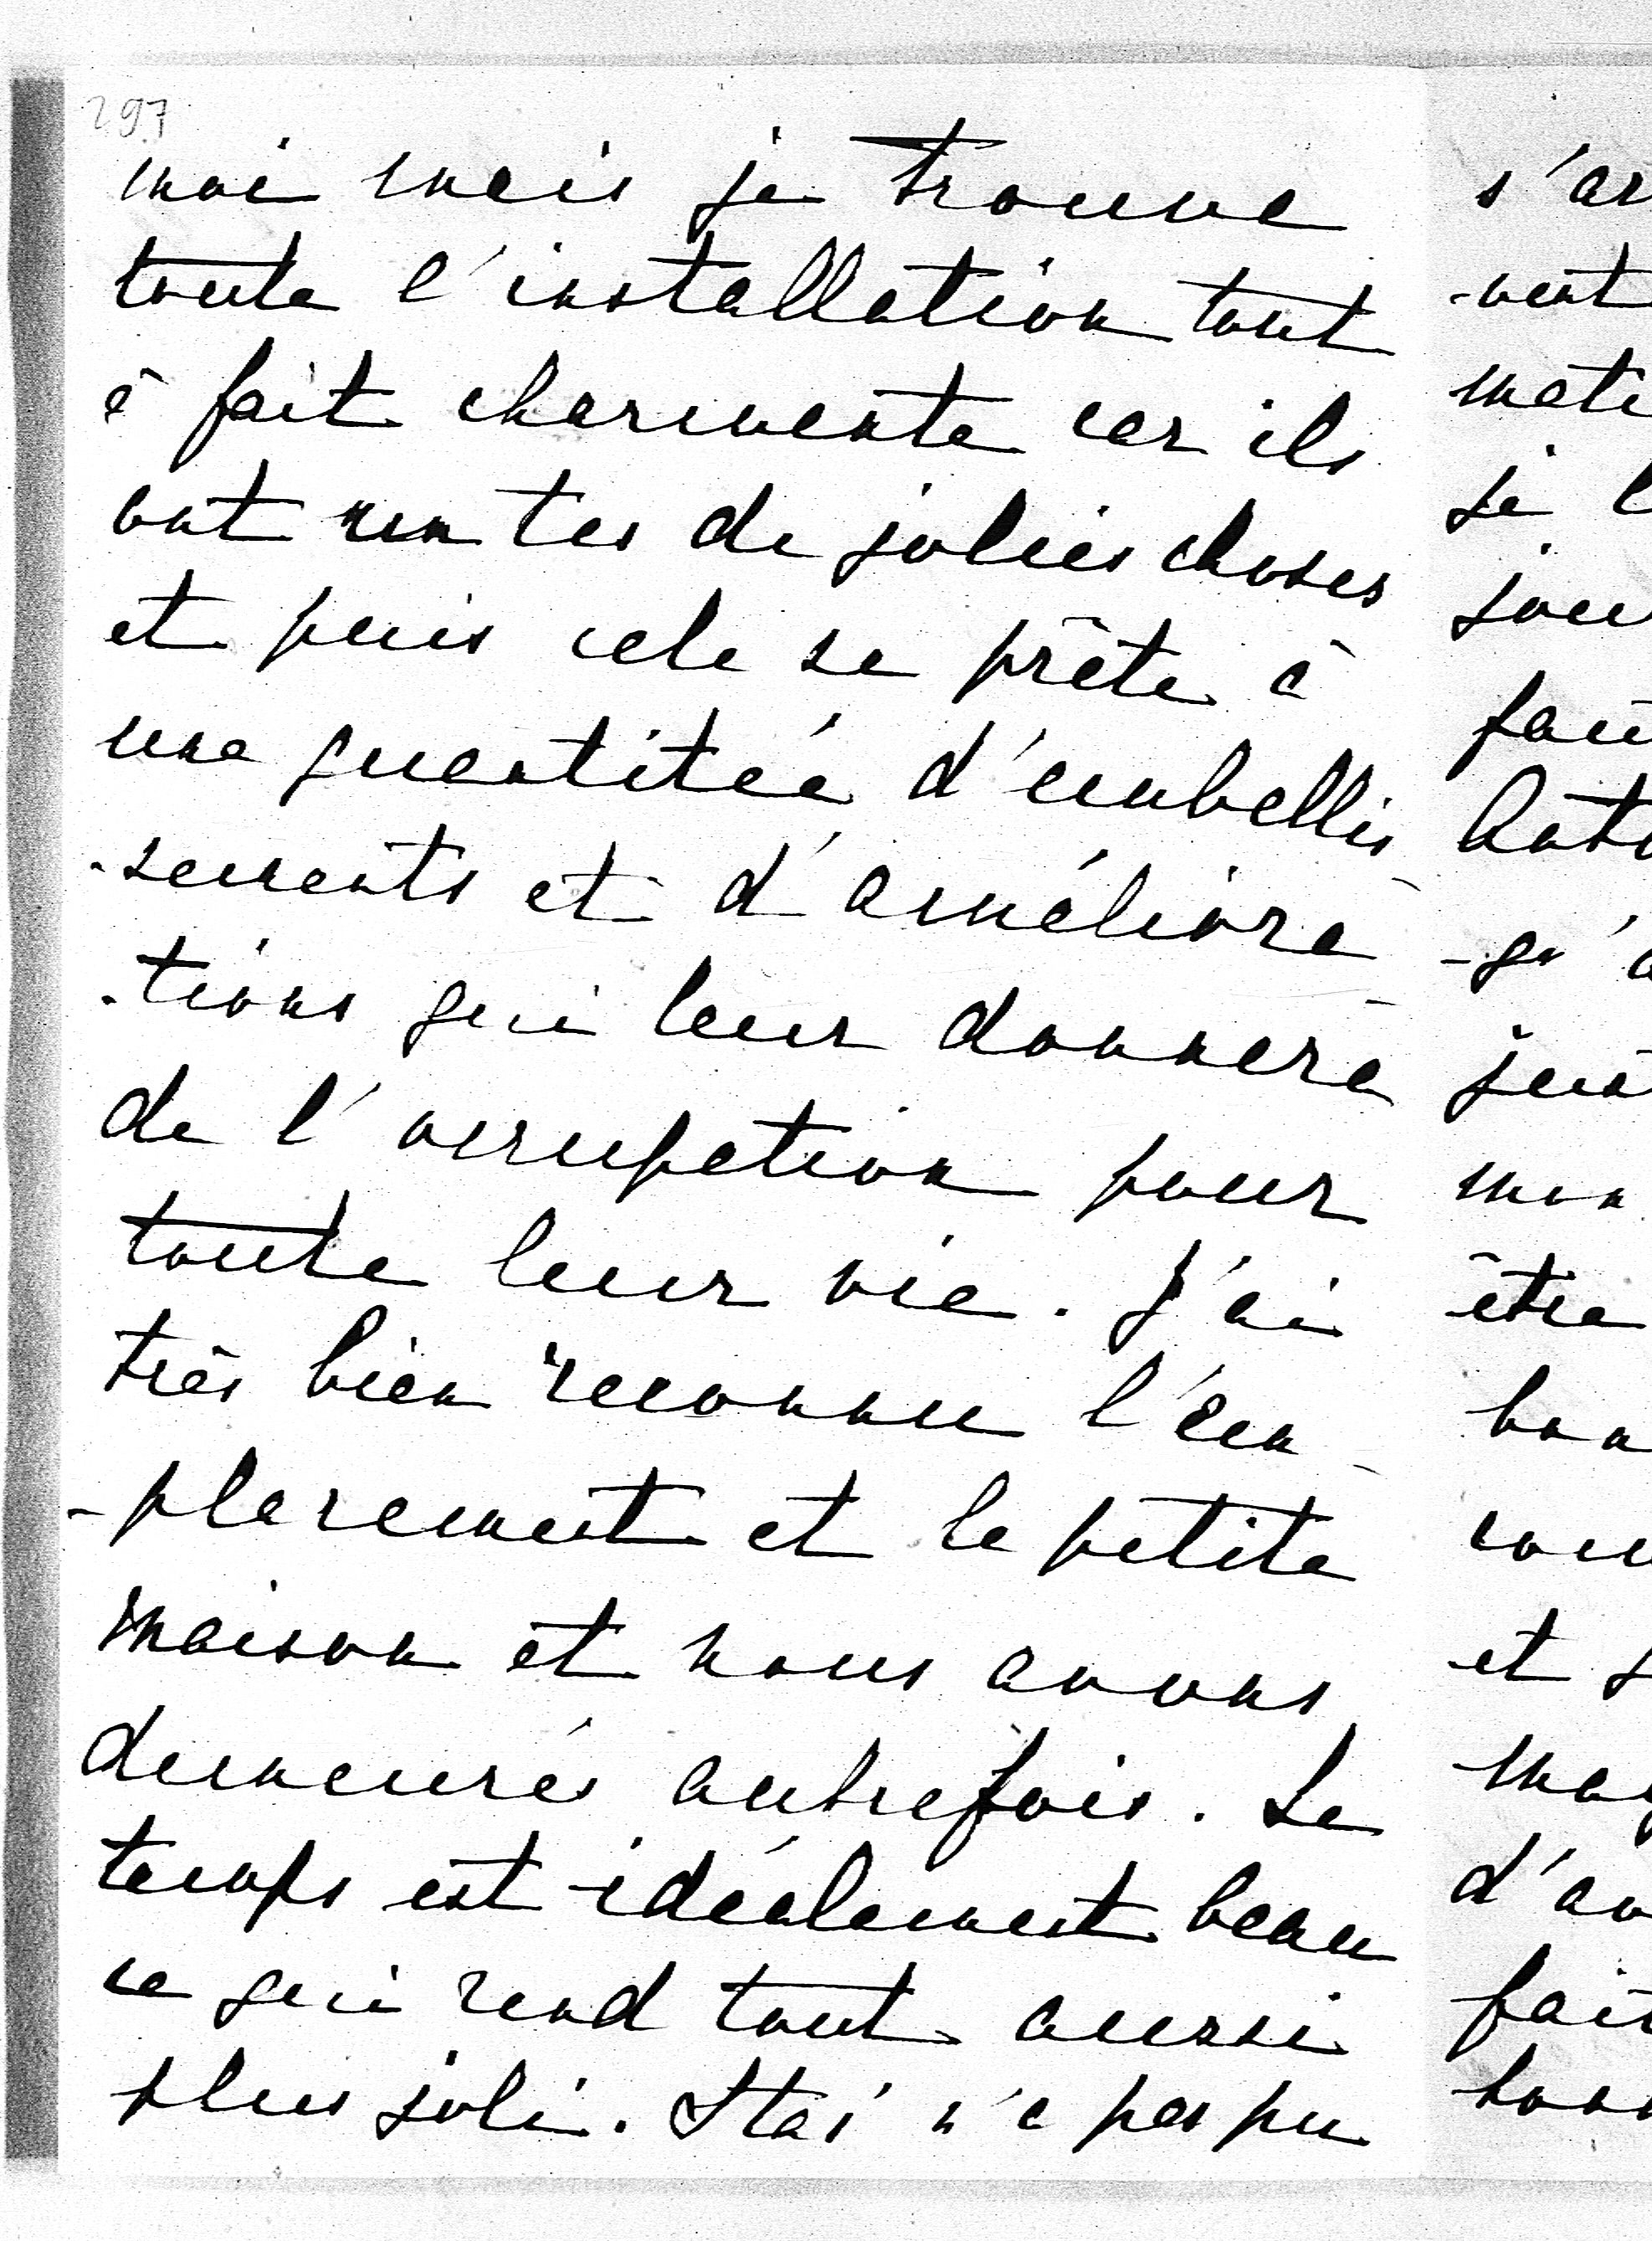 297
moi mais je trouve
toute l'installation tout
à fait charmante car ils
ont un tas de jolies choses
et puis cela se prête à
une quantitée d'embellis
-sements et d'améliora-
-tions qui leur donnera
de l'occupation pour
toute leur vie. J'ai
très bien reconnu l'em-
-placement et la petite
maison et nous avons
demeurés autrefois. Le
temps est idéalement beau
ce qui rend tout aussi
plus joli. n'a pas pu
s'ar
-vent
mati
je l
jou
fau
-qu'a
mon
être
bon
cou
et
d'av
fait